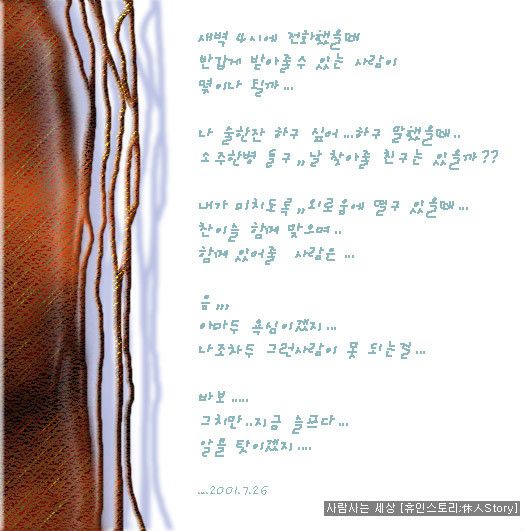 새벽 4시에 전화했을때
반갑게 받아줄수 있는 사람이
몇이나 될까...
나 술한잔 하구 싶어...하구 말했을때..
소주한병 들구,,날 찾아줄 친구는 있을까??
내가 미치도록,,외로움에 떨구 있을때...
찬이슬 함께 맞으며..
함께 있어줄 사람은 ...
음,,,
아마두 욕심이겠지...
나조차두 그런사람이 못 되는걸...
바보.....
그치만..지금 슬프다...
알을 탓이겠지....
....2001.7.26
사람사는 세상 [휴인스토리;休人Story]